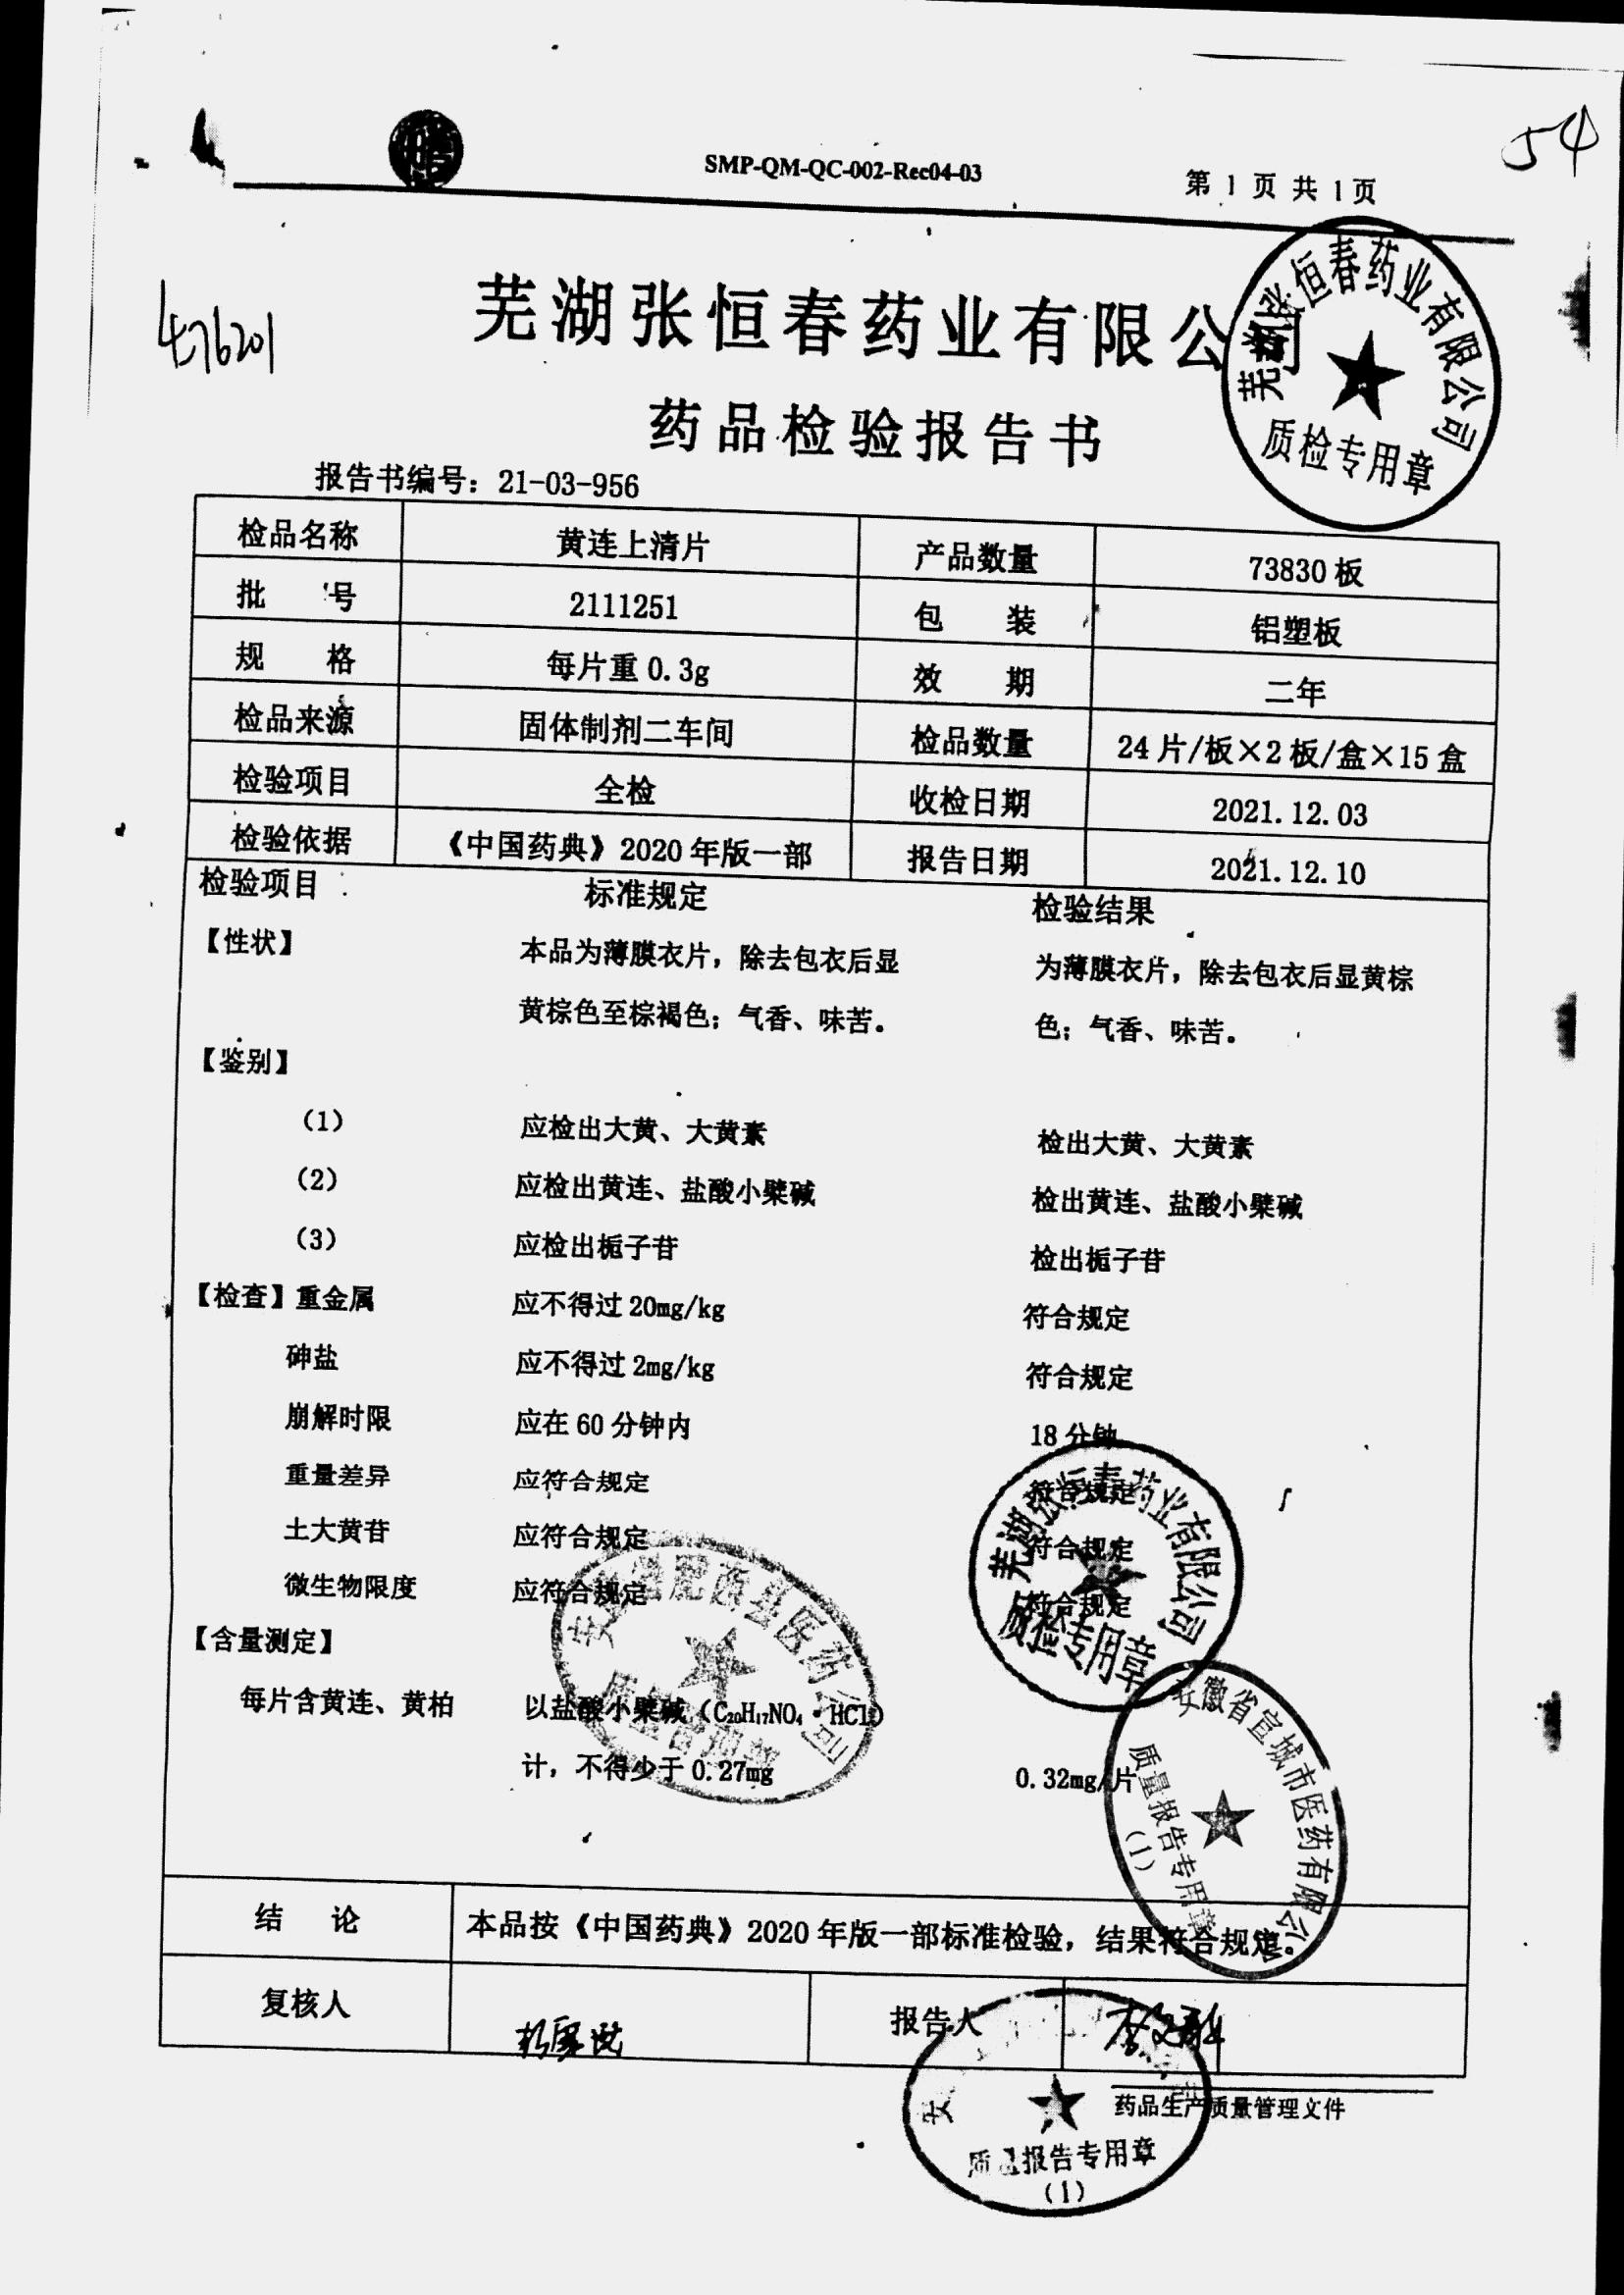 SMP-QM-QC-002-Rec04-03
第 1 页 共 1 页
54
476201
芜湖张恒春药业有限公司
药品检验报告书
芜湖张恒春药业有限公司
质检专用章
报告书编号：21-03-956
检品名称 黄连上清片 产品数量 73830 板
批 号 2111251 包 装 铝塑板
规 格 每片重 0.3g 效 期 二年
检品来源 固体制剂二车间 检品数量 24 片/板×2 板/盒×15 盒
检验项目 全检 收检日期 2021.12.03
检验依据 《中国药典》2020 年版一部 报告日期 2021.12.10
检验项目 标准规定 检验结果
【性状】 本品为薄膜衣片，除去包衣后显 为薄膜衣片，除去包衣后显黄棕
黄棕色至棕褐色；气香、味苦。 色；气香、味苦。
【鉴别】
（1） 应检出大黄、大黄素 检出大黄、大黄素
（2） 应检出黄连、盐酸小檗碱 检出黄连、盐酸小檗碱
（3） 应检出栀子苷 检出栀子苷
【检查】重金属 应不得过 20mg/kg 符合规定
砷盐 应不得过 2mg/kg 符合规定
崩解时限 应在 60 分钟内 18 分钟
重量差异 应符合规定 符合规定
土大黄苷 应符合规定 符合规定
微生物限度 应符合规定 符合规定
芜湖张恒春药业有限公司
质检专用章
【含量测定】
每片含黄连、黄柏 以盐酸小檗碱（C₂₀H₁₇NO₄·HCl）
计，不得少于 0.27mg 0.32mg/片
肥源县医药公司
安徽省宣城市医药有限公
质量报告专用章
（1）
结 论 本品按《中国药典》2020 年版一部标准检验，结果符合规定。
复核人 报告人
药品生产质量管理文件
安
质量报告专用章
（1）